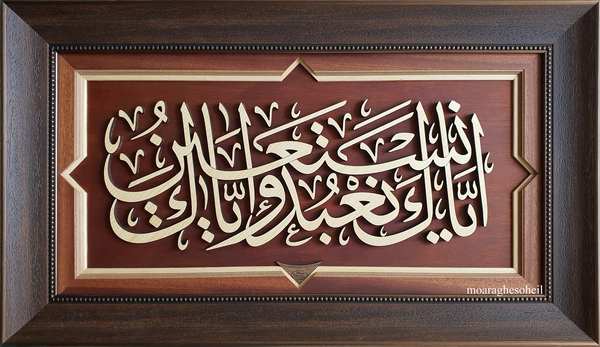 إياك نعبد وإياك نستعين
moaraghesoheil